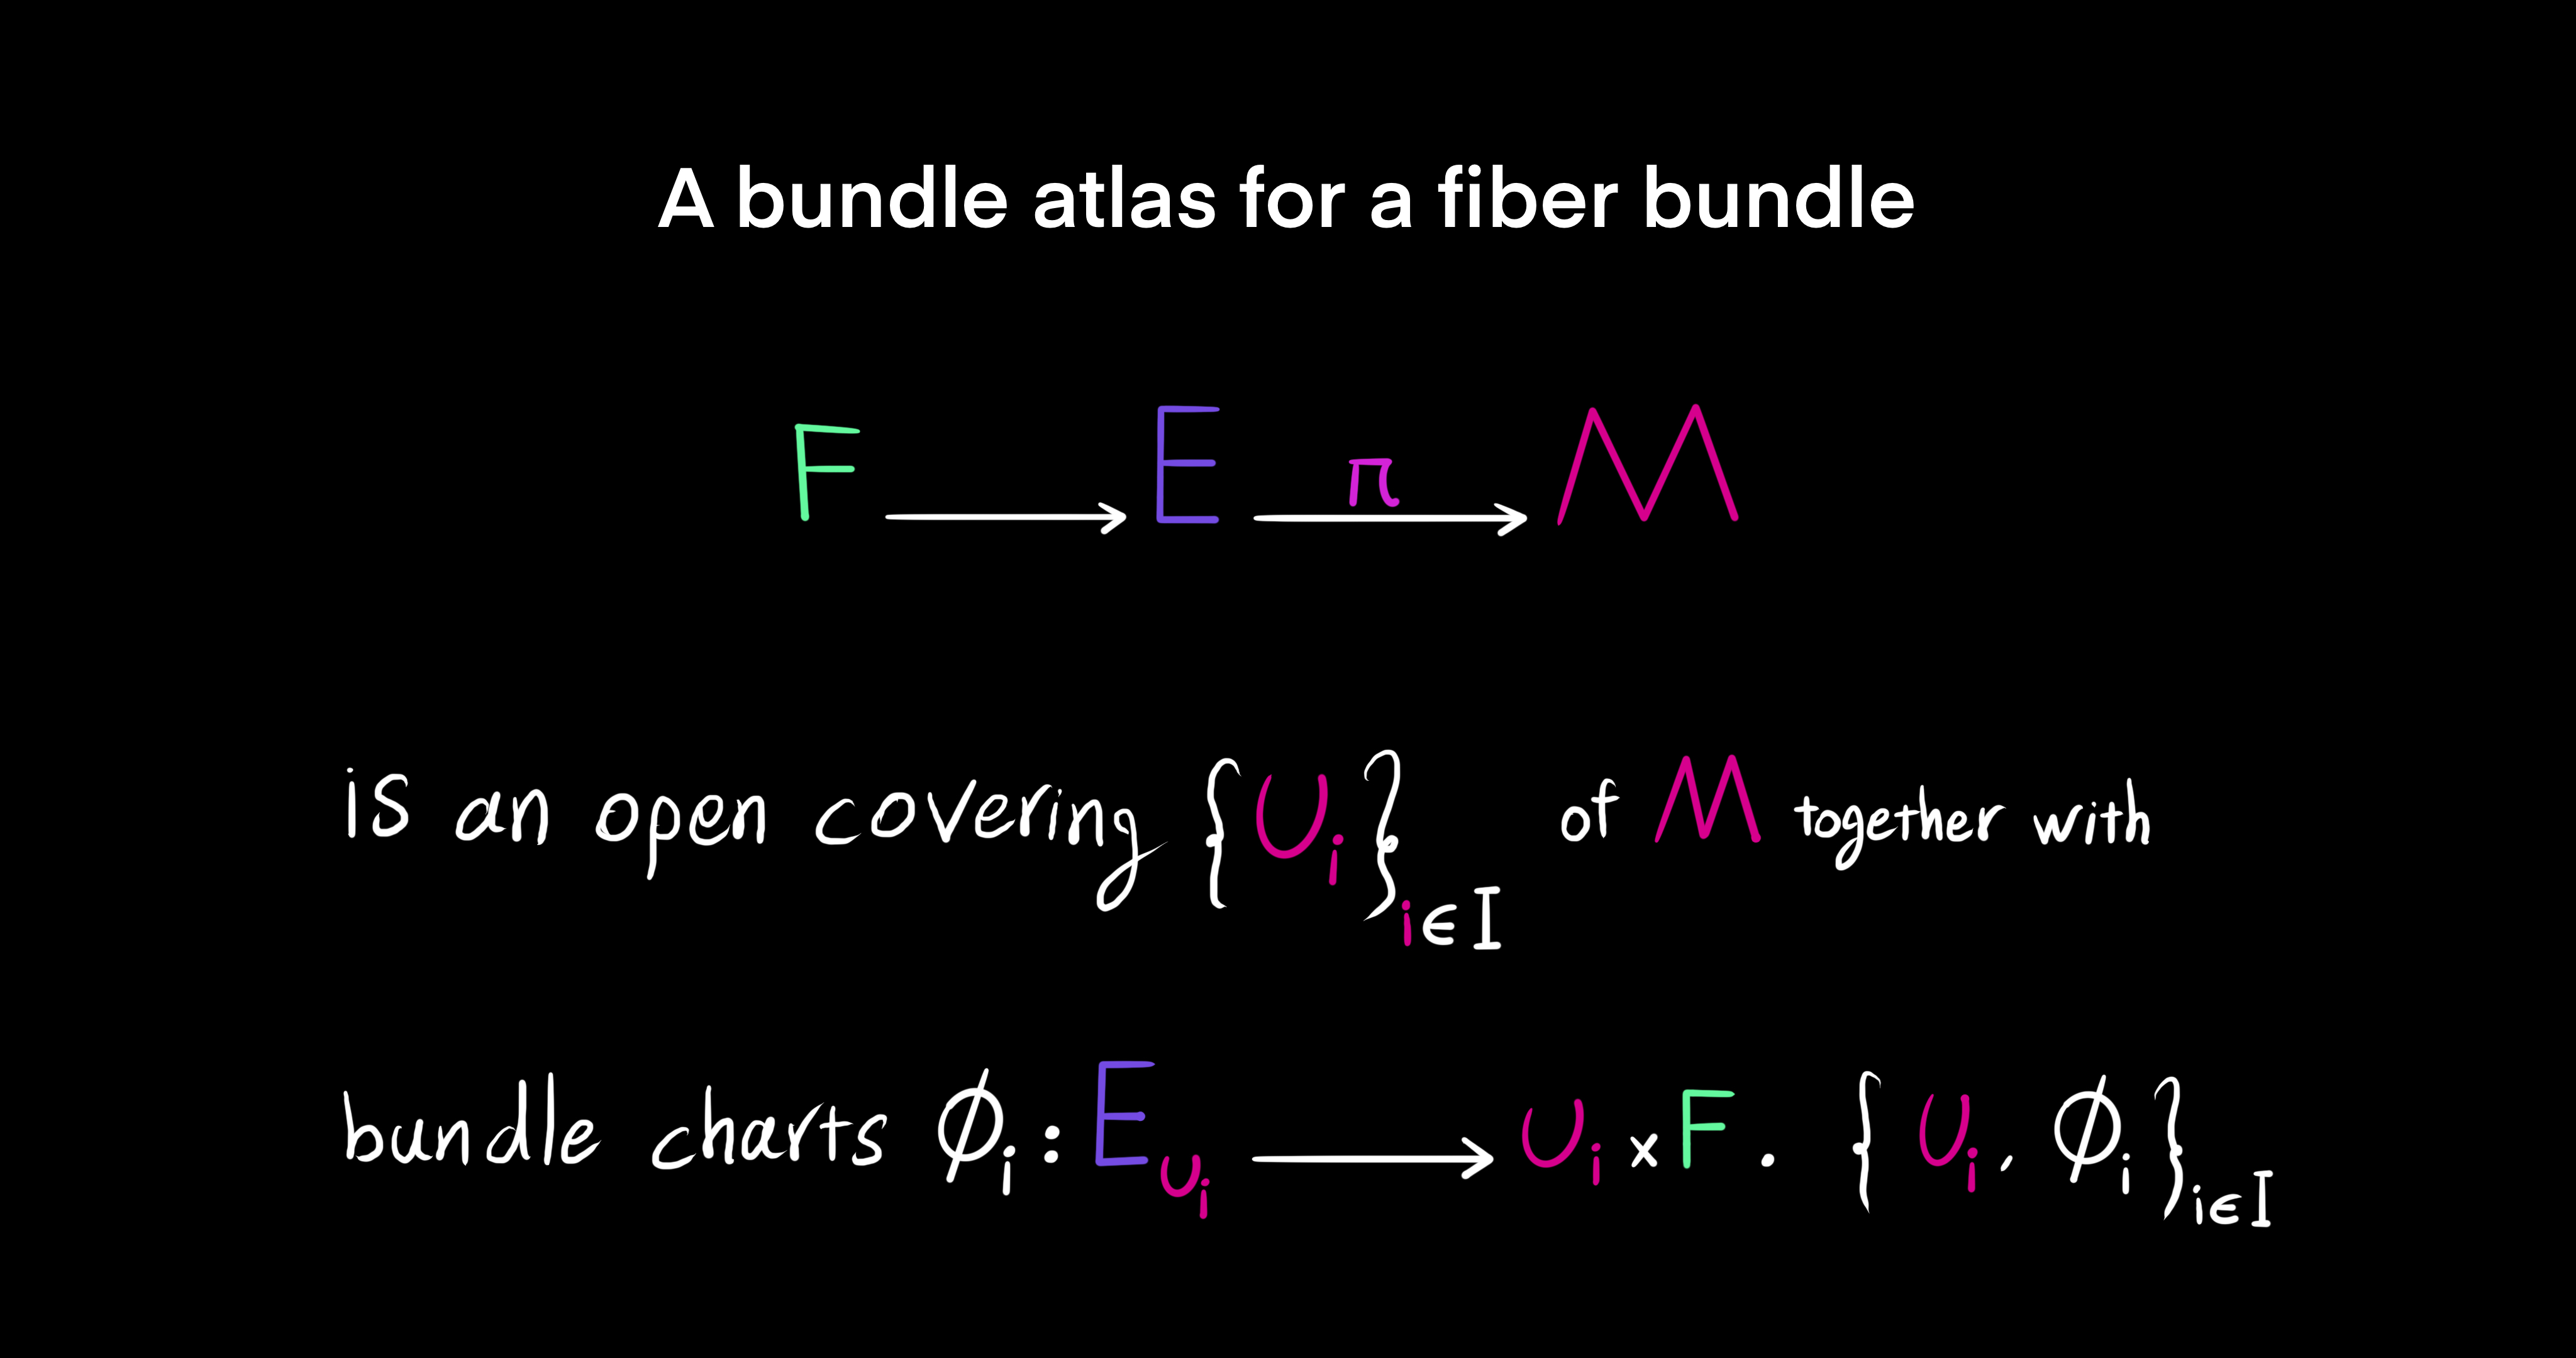 A bundle atlas for a fiber bundle
F → E →π M
is an open covering {Uᵢ}ᵢ∈I of M together with
bundle charts ϕᵢ : E_Uᵢ → Uᵢ × F. {Uᵢ, ϕᵢ}ᵢ∈I